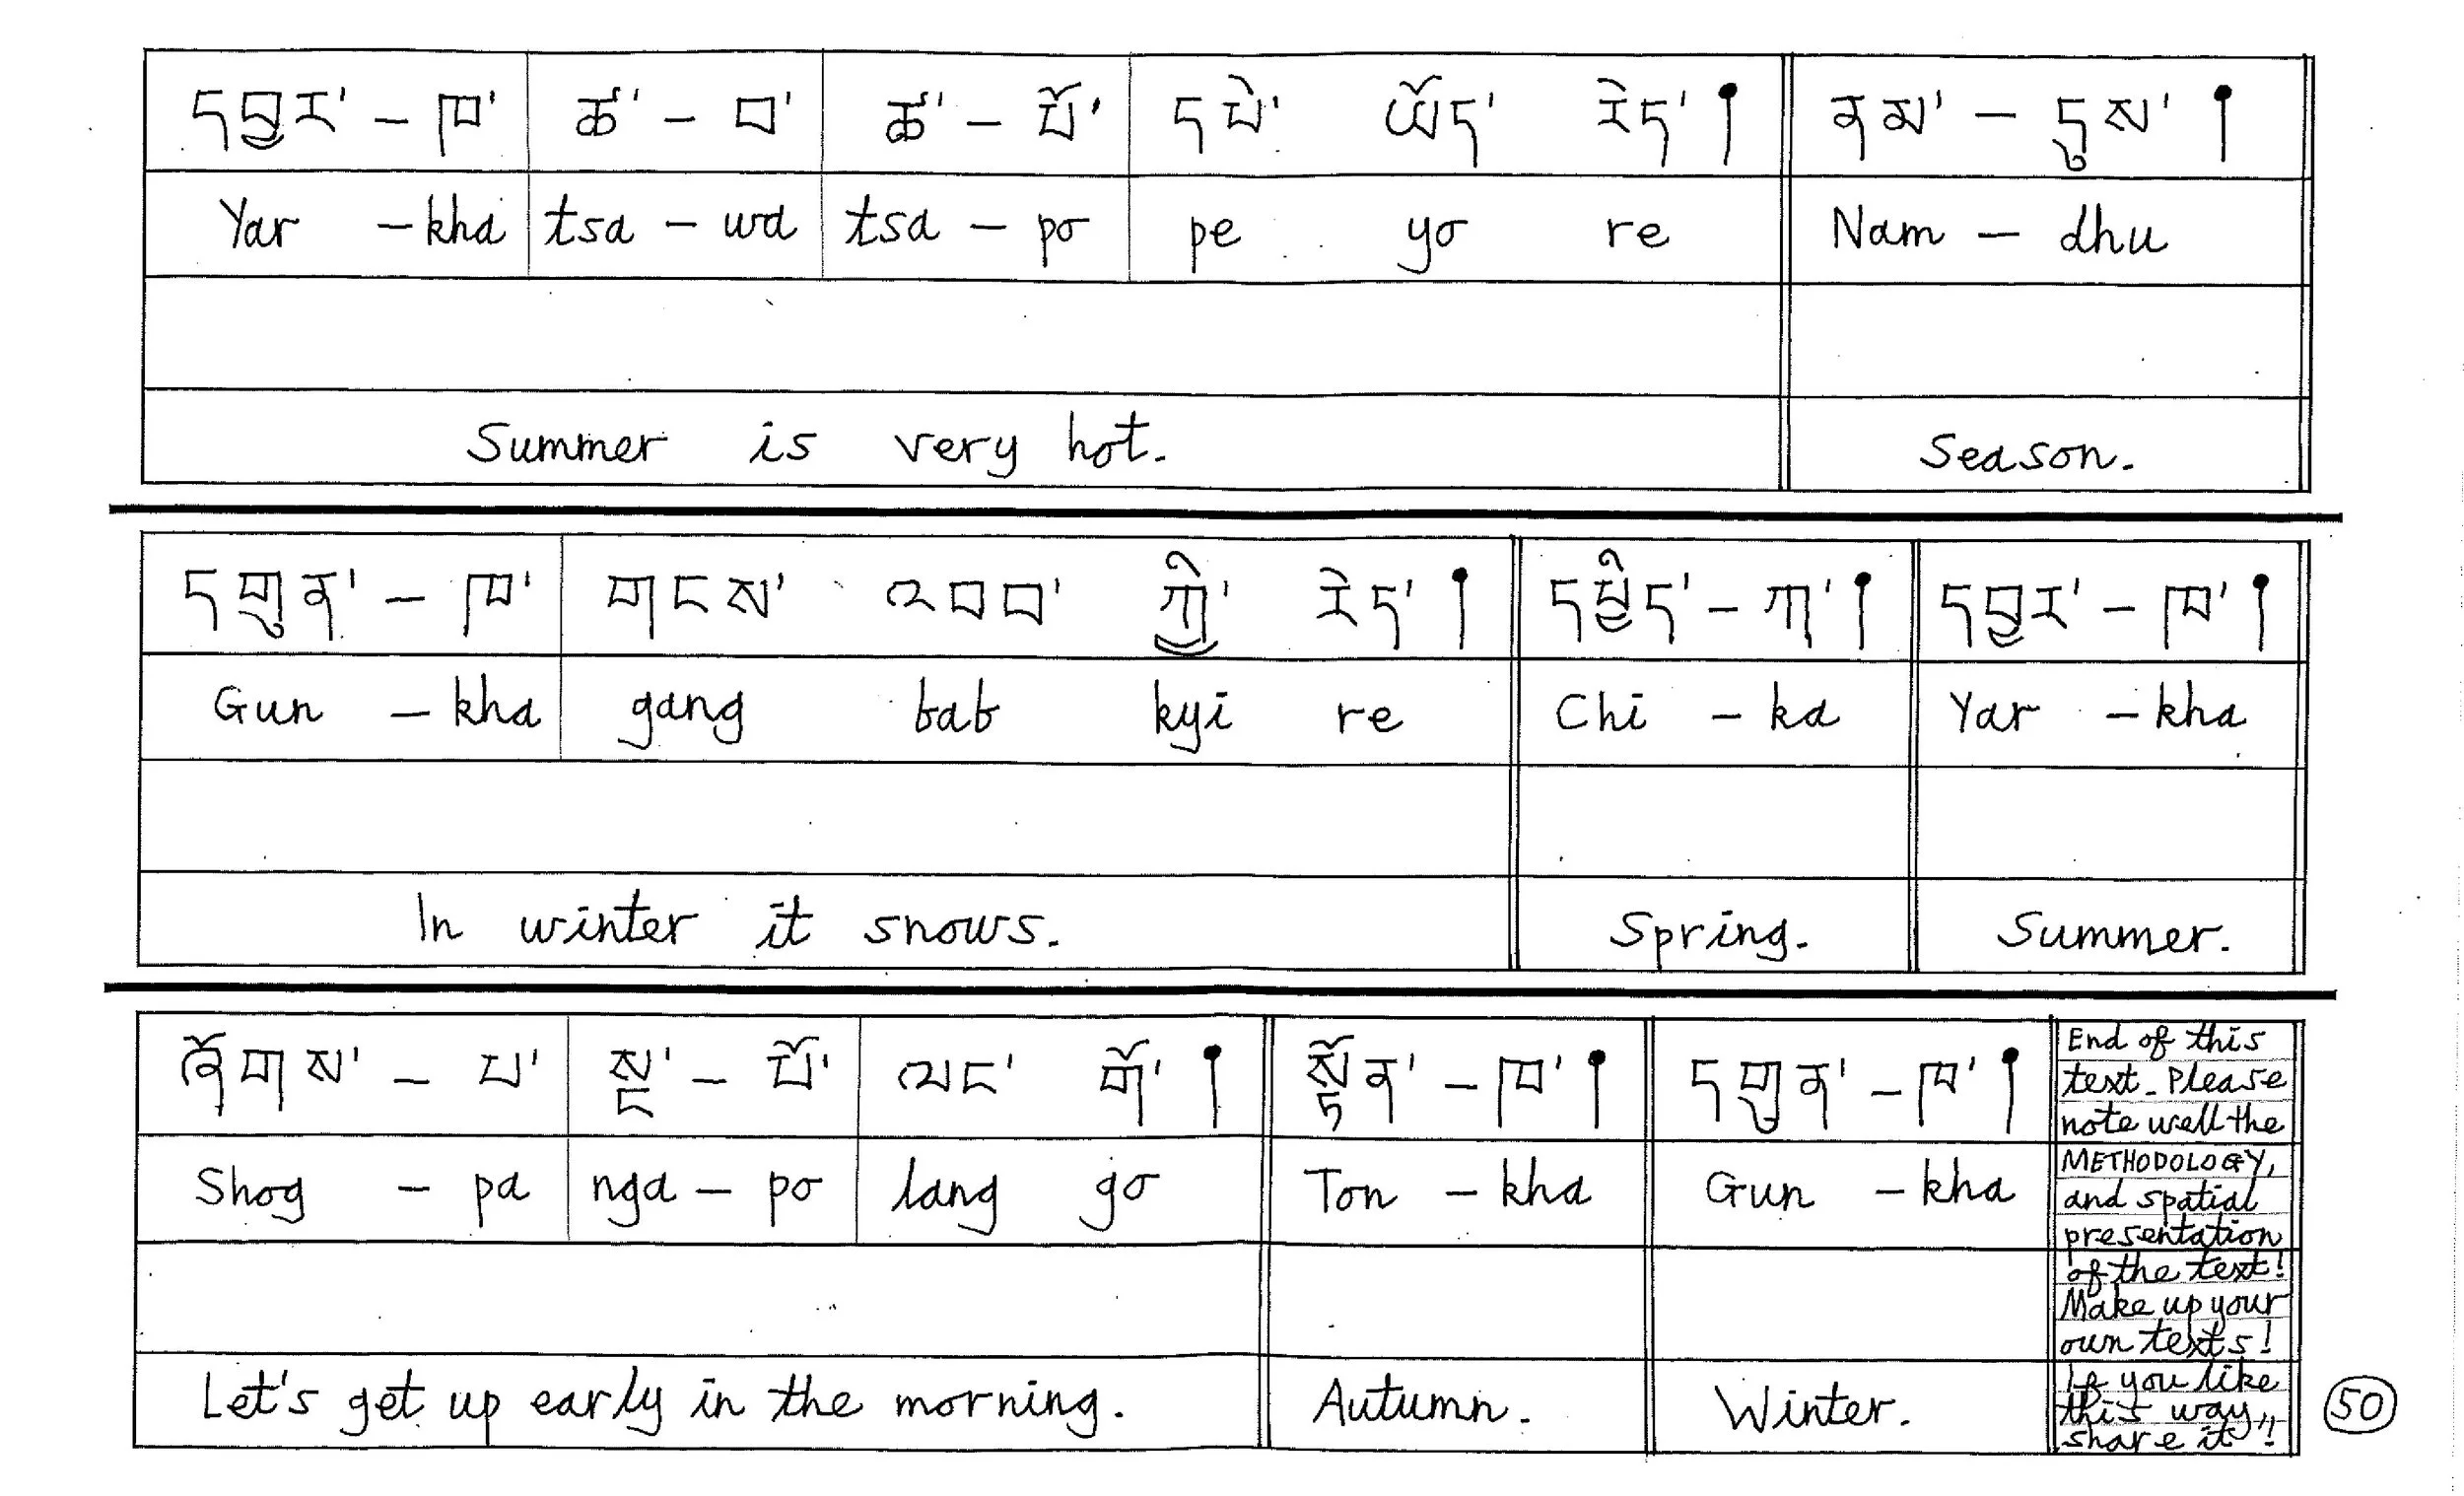 དབྱར་ - ཁ་ ཚ་ - བ་ ཚ་ - པོ་ དཔེ་ ཡོད་ རེད། ནམ་ - དུས་།
Yar - kha tsa - wa tsa - po pe yo re Nam - dhu
Summer is very hot. Season.
དགུན་ - ཁ་ གངས་ འབབ་ ཀྱི་ རེད་། དཔྱིད་ - ཀ་། དབྱར་ - ཁ་།
Gun - kha gang bab kyi re Chi - ka Yar - kha
In winter it snows. Spring. Summer.
ཞོགས་ - པ་ སྔ་ - པོ་ ལང་ གོ་། སྟོན་ - ཁ་། དགུན་ - ཁ་།
Shog - pa nga - po lang go Ton - kha Gun - kha
Let's get up early in the morning. Autumn. Winter.
End of this
text. Please
note well the
METHODOLOGY,
and spatial
presentation
of the text!
Make up your
own texts!
If you like
this way,
share it"!
50